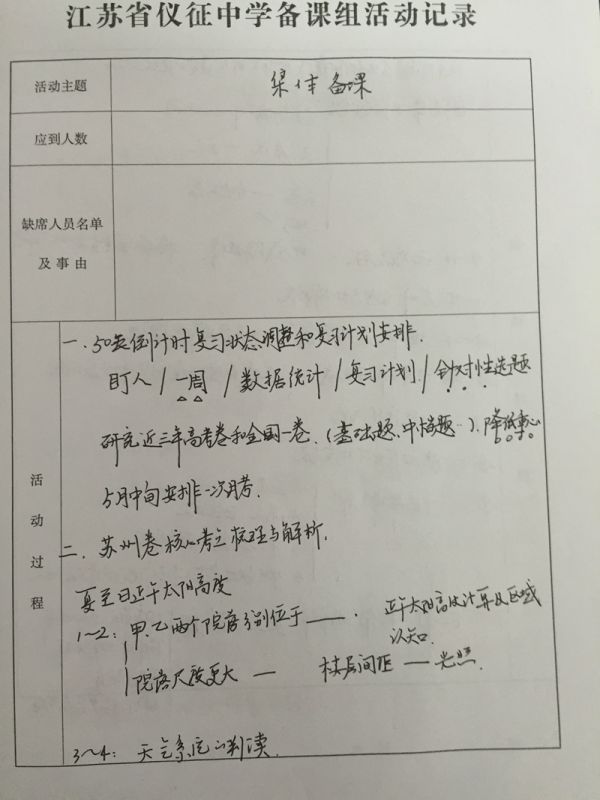 江苏省仪征中学备课组活动记录
活动主题
集体备课
应到人数
缺席人员名单
及事由
活动过程
一、50天倒计时复习状态调整和复习计划安排.
盯人/一周/数据统计/复习计划/针对性选题
研究近三年高考卷和全国一卷.(基础题、中档题…).降低重心
5月中旬安排一次月考.
二、苏州卷核心考点梳理与解析.
夏至日正午太阳高度
1~2:甲、乙两个院落分别位于——. 正午太阳高度计算及区域
认知.
院落尺度更大 — 楼层间距 — 光照.
3~4: 天气系统的判读.